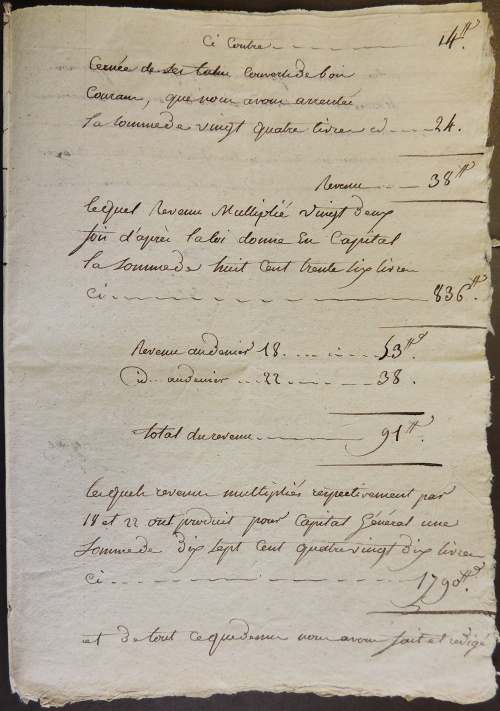 Ci Contre 14#
Cernée de ses talus couverts de bois
Courans, que nous avons arrentée
la somme de vingt quatre livres ci 24.
Revenu 38#
lequel Revenu Multiplié vingt deux
fois d'après la loi donne En Capital
la Somme de huit Cent trente six livres
Ci 836#
Revenu au denier 18. 53#
id au denier 22 38.
total du revenu 91#.
lesquels revenus multipliés respectivement par
18 et 22 ont produit pour Capital Général une
Somme de dix sept Cent quatre vingt dix livres
Ci 1790#.
et de tout ce que dessus nous avons fait et rédigé